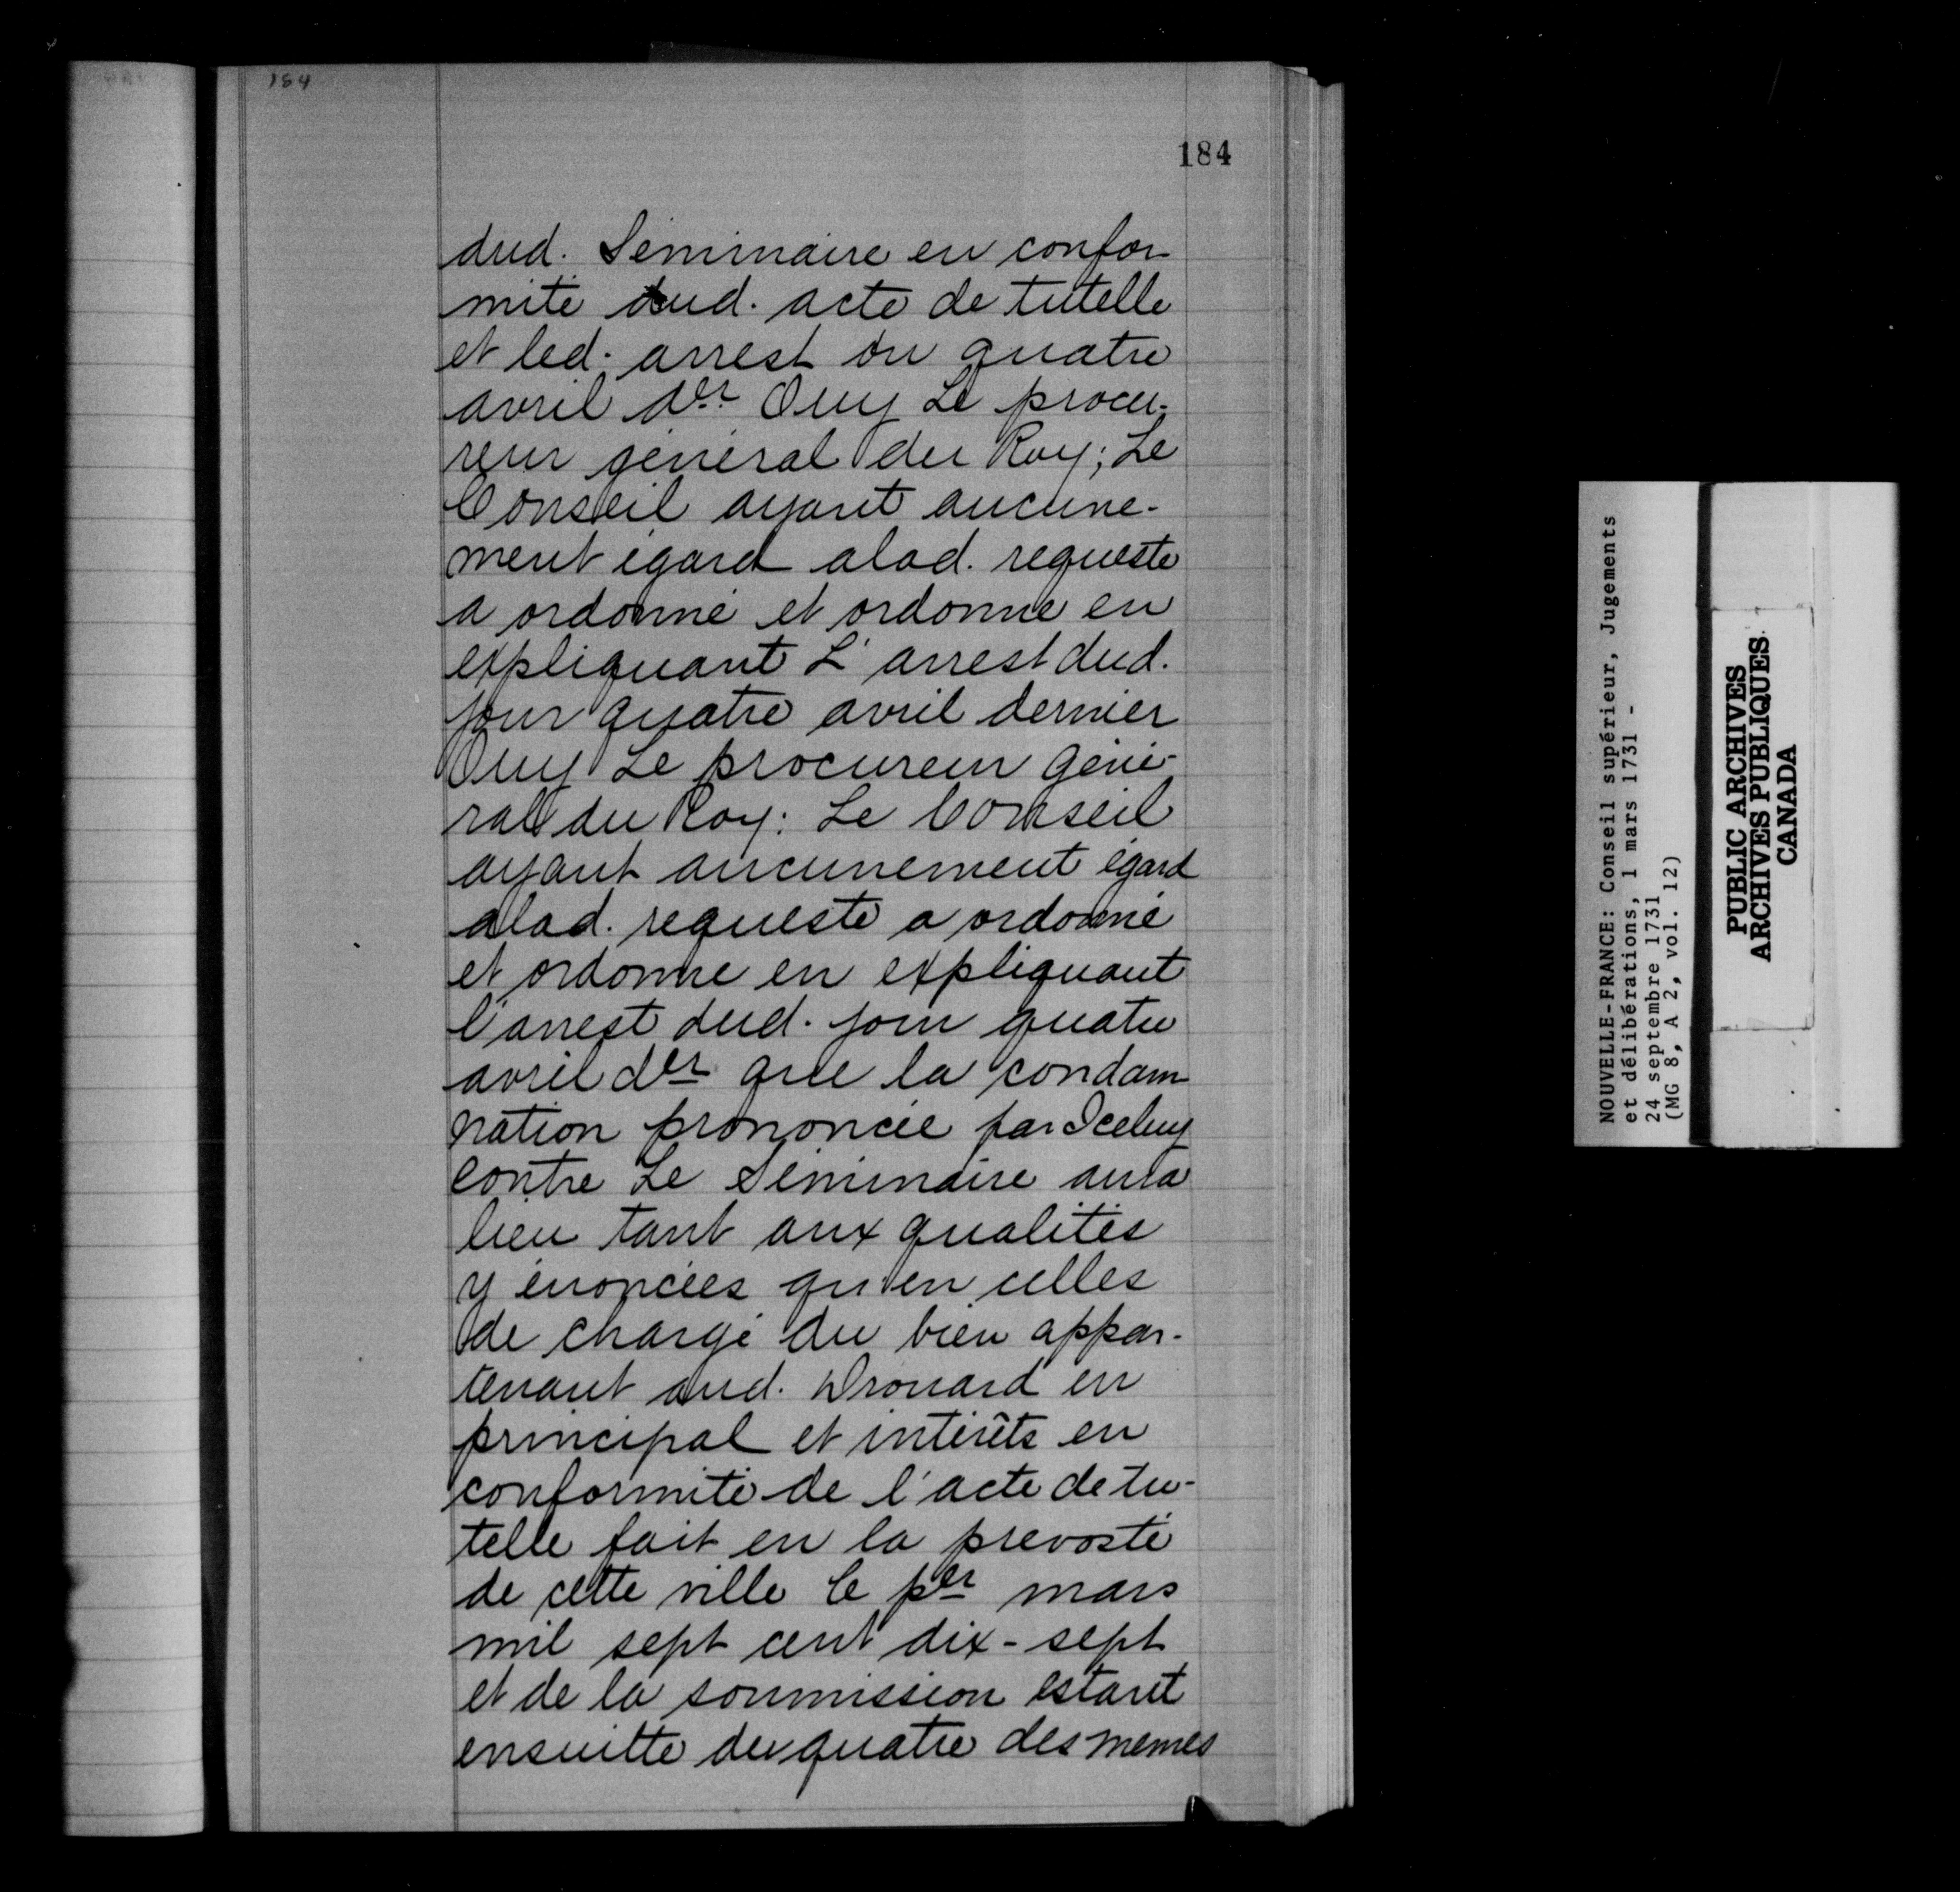 184
184
dud. Séminaire en confor-
mité dud. acte de tutelle
et led. arrest du quatre
avril der Ouy Le procu-
reur général du Roy; Le
Conseil ayant aucune-
ment égard alad. requeste
a ordonné et ordonne en
expliquant L'arrest dud.
jour quatre avril dernier
Ouy Le procureur géné-
ral du Roy: Le Conseil
ayant aucunement égard
alad. requeste a ordonné
et ordonne en expliquant
l'arrest dud. jour quatre
avril der que la condam-
nation prononcée par Iceluy
contre Le Séminaire aura
lieu tant aux qualités
y énoncées qu'en celles
de chargé du bien appar-
tenant aud. Drouard en
principal et intérêts en
conformité de l'acte de tu-
telle fait en la prevosté
de cette ville le per mars
mil sept cent dix-sept
et de la soumission estant
ensuitte du quatre des memes
NOUVELLE-FRANCE: Conseil supérieur, Jugements
et délibérations, 1 mars 1731 -
24 septembre 1731
(MG 8, A 2, vol. 12)
PUBLIC ARCHIVES
ARCHIVES PUBLIQUES
CANADA